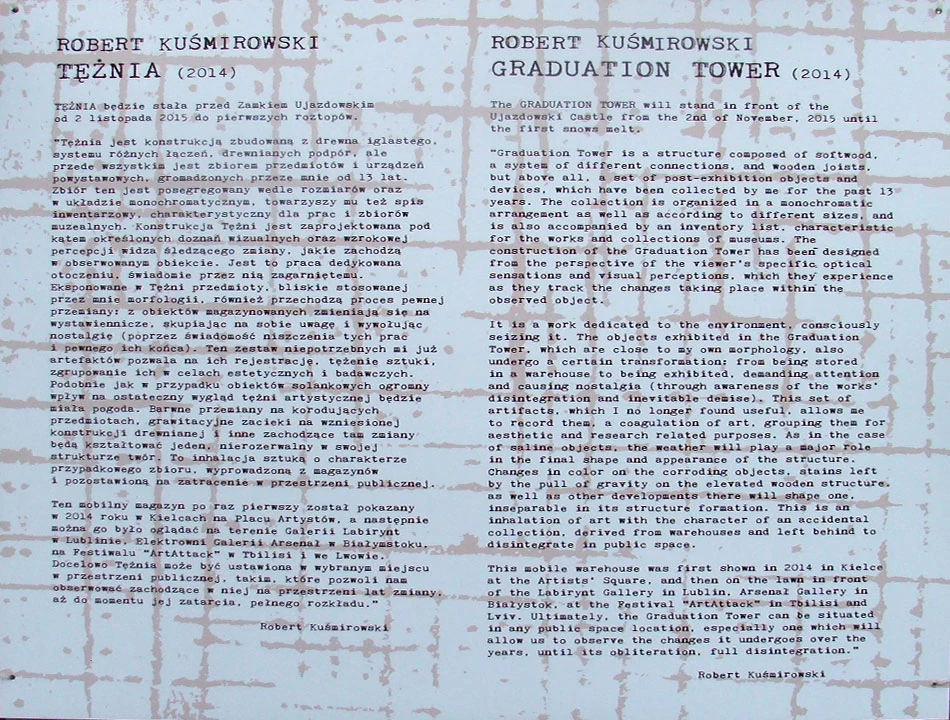 ROBERT KUŚMIROWSKI
TĘŻNIA (2014)
TĘŻNIA będzie stała przed Zamkiem Ujazdowskim
od 2 listopada 2015 do pierwszych roztopów.
"Tężnia jest konstrukcją zbudowaną z drewna iglastego,
systemu różnych łączeń, drewnianych podpór, ale
przede wszystkim jest zbiorem przedmiotów i urządzeń
powystawowych, gromadzonych przeze mnie od 13 lat.
Zbiór ten jest posegregowany wedle rozmiarów oraz
w układzie monochromatycznym, towarzyszy mu też spis
inwentarzowy, charakterystyczny dla prac i zbiorów
muzealnych. Konstrukcja Tężni jest zaprojektowana pod
kątem określonych doznań wizualnych oraz wzrokowej
percepcji widza śledzącego zmiany, jakie zachodzą
w obserwowanym obiekcie. Jest to praca dedykowana
otoczeniu, świadomie przez nią zagarniętemu.
Eksponowane w Tężni przedmioty, bliskie stosowanej
przez mnie morfologii, również przechodzą proces pewnej
przemiany: z obiektów magazynowanych zmieniają się na
wystawiennicze, skupiając na sobie uwagę i wywołując
nostalgię (poprzez świadomość niszczenia tych prac
i pewnego ich końca). Ten zestaw niepotrzebnych mi już
artefaktów pozwala na ich rejestrację, tężenie sztuki,
zgrupowanie ich w celach estetycznych i badawczych.
Podobnie jak w przypadku obiektów solankowych ogromny
wpływ na ostateczny wygląd tężni artystycznej będzie
miała pogoda. Barwne przemiany na korodujących
przedmiotach, grawitacyjne zacieki na wzniesionej
konstrukcji drewnianej i inne zachodzące tam zmiany
będą kształtować jeden, nierozerwalny w swojej
strukturze twór. To inhalacja sztuką o charakterze
przypadkowego zbioru, wyprowadzoną z magazynów
i pozostawioną na zatracenie w przestrzeni publicznej.
Ten mobilny magazyn po raz pierwszy został pokazany
w 2014 roku w Kielcach na Placu Artystów, a następnie
można go było oglądać na terenie Galerii Labirynt
w Lublinie, Elektrowni Galerii Arsenał w Białymstoku,
na Festiwalu "ArtAttack" w Tbilisi i we Lwowie.
Docelowo Tężnia może być ustawiona w wybranym miejscu
w przestrzeni publicznej, takim, które pozwoli nam
obserwować zachodzące w niej na przestrzeni lat zmiany,
aż do momentu jej zatarcia, pełnego rozkładu."
Robert Kuśmirowski
ROBERT KUŚMIROWSKI
GRADUATION TOWER (2014)
The GRADUATION TOWER will stand in front of the
Ujazdowski Castle from the 2nd of November, 2015 until
the first snows melt.
"Graduation Tower is a structure composed of softwood,
a system of different connections, and wooden joists,
but above all, a set of post-exhibition objects and
devices, which have been collected by me for the past 13
years. The collection is organized in a monochromatic
arrangement as well as according to different sizes, and
is also accompanied by an inventory list, characteristic
for the works and collections of museums. The
construction of the Graduation Tower has been designed
from the perspective of the viewer's specific optical
sensations and visual perceptions, which they experience
as they track the changes taking place within the
observed object.
It is a work dedicated to the environment, consciously
seizing it. The objects exhibited in the Graduation
Tower, which are close to my own morphology, also
undergo a certain transformation: from being stored
in a warehouse to being exhibited, demanding attention
and causing nostalgia (through awareness of the works'
disintegration and inevitable demise). This set of
artifacts, which I no longer found useful, allows me
to record them, a coagulation of art, grouping them for
aesthetic and research related purposes. As in the case
of saline objects, the weather will play a major role
in the final shape and appearance of the structure.
Changes in color on the corroding objects, stains left
by the pull of gravity on the elevated wooden structure,
as well as other developments there will shape one,
inseparable in its structure formation. This is an
inhalation of art with the character of an accidental
collection, derived from warehouses and left behind to
disintegrate in public space.
This mobile warehouse was first shown in 2014 in Kielce
at the Artists' Square, and then on the lawn in front
of the Labirynt Gallery in Lublin, Arsenał Gallery in
Białystok, at the Festival "ArtAttack" in Tbilisi and
Lviv. Ultimately, the Graduation Tower can be situated
in any public space location, especially one which will
allow us to observe the changes it undergoes over the
years, until its obliteration, full disintegration."
Robert Kuśmirowski